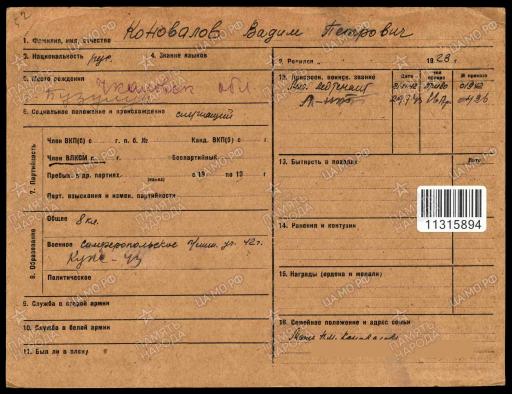 52
1. Фамилия, имя, отчество Коновалов Вадим Петрович
3. Национальность рус. 4. Знание языков
5. Место рождения Чкаловск. обл.
Бузулук
6. Социальное положение и происхождение служащий
7. Партийность
Член ВКП(б) с г. п. б. № Канд. ВКП(б) с г.
Член ВЛКСМ с г. Беспартийный
Пребыв. в др. партиях с 19 по 19 г.
(каких)
Парт. взыскания и номен. партийности
8. Образование
Общее 8 кл.
Военное Симферопольское уч. 42 г.
Политическое
9. Служба в старой армии
10. Служба в белой армии
11. Был ли в плену
2. Родился 1923 г.
12. Присвоен. воинск. звание Дата Чей приказ № приказа
Мл. лейтенант
Л-нт 0436
13. Бытность в походах Дата
11315894
14. Ранения и контузии
15. Награды (ордена и медали)
16. Семейное положение и адрес семьи
Мать Н.М. Коновалова
ПАМЯТЬ НАРОДА
ЦАМО.РФ